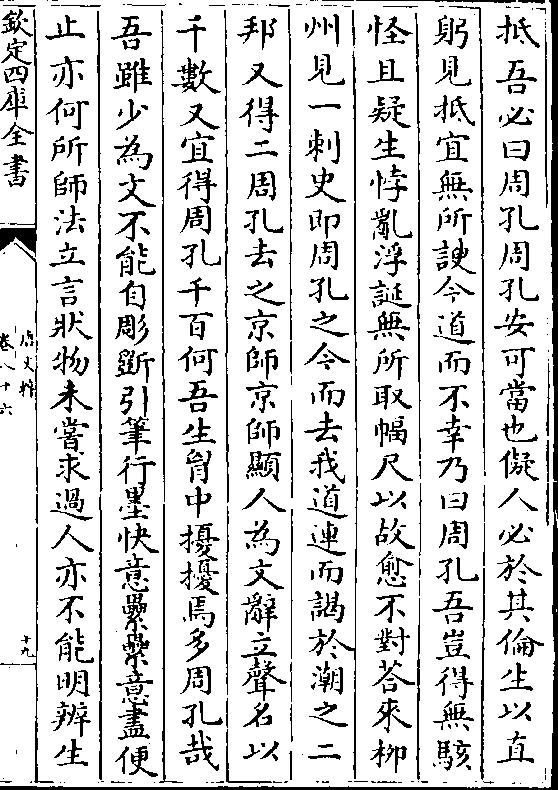 抵吾必曰周孔周孔安可當也儗人必於其倫生以直
躬見抵宜無所諛今道而不幸乃曰周孔吾豈得無駭
怪且疑生悖亂浮誕無所取幅尺以故愈不對荅來柳
州見一刺史即周孔之今而去我道連而謁於潮之二
邦又得二周孔去之京師京師顯人為文辭立聲名以
千數又宜得周孔千百何吾生胷中擾擾焉多周孔哉
吾雖少為文不能自彫斵引筆行墨快意纍纍意盡便
止亦何所師法立言狀物未嘗求過人亦不能明辨生
欽定四庫全書
唐文粹
卷八十六
十九